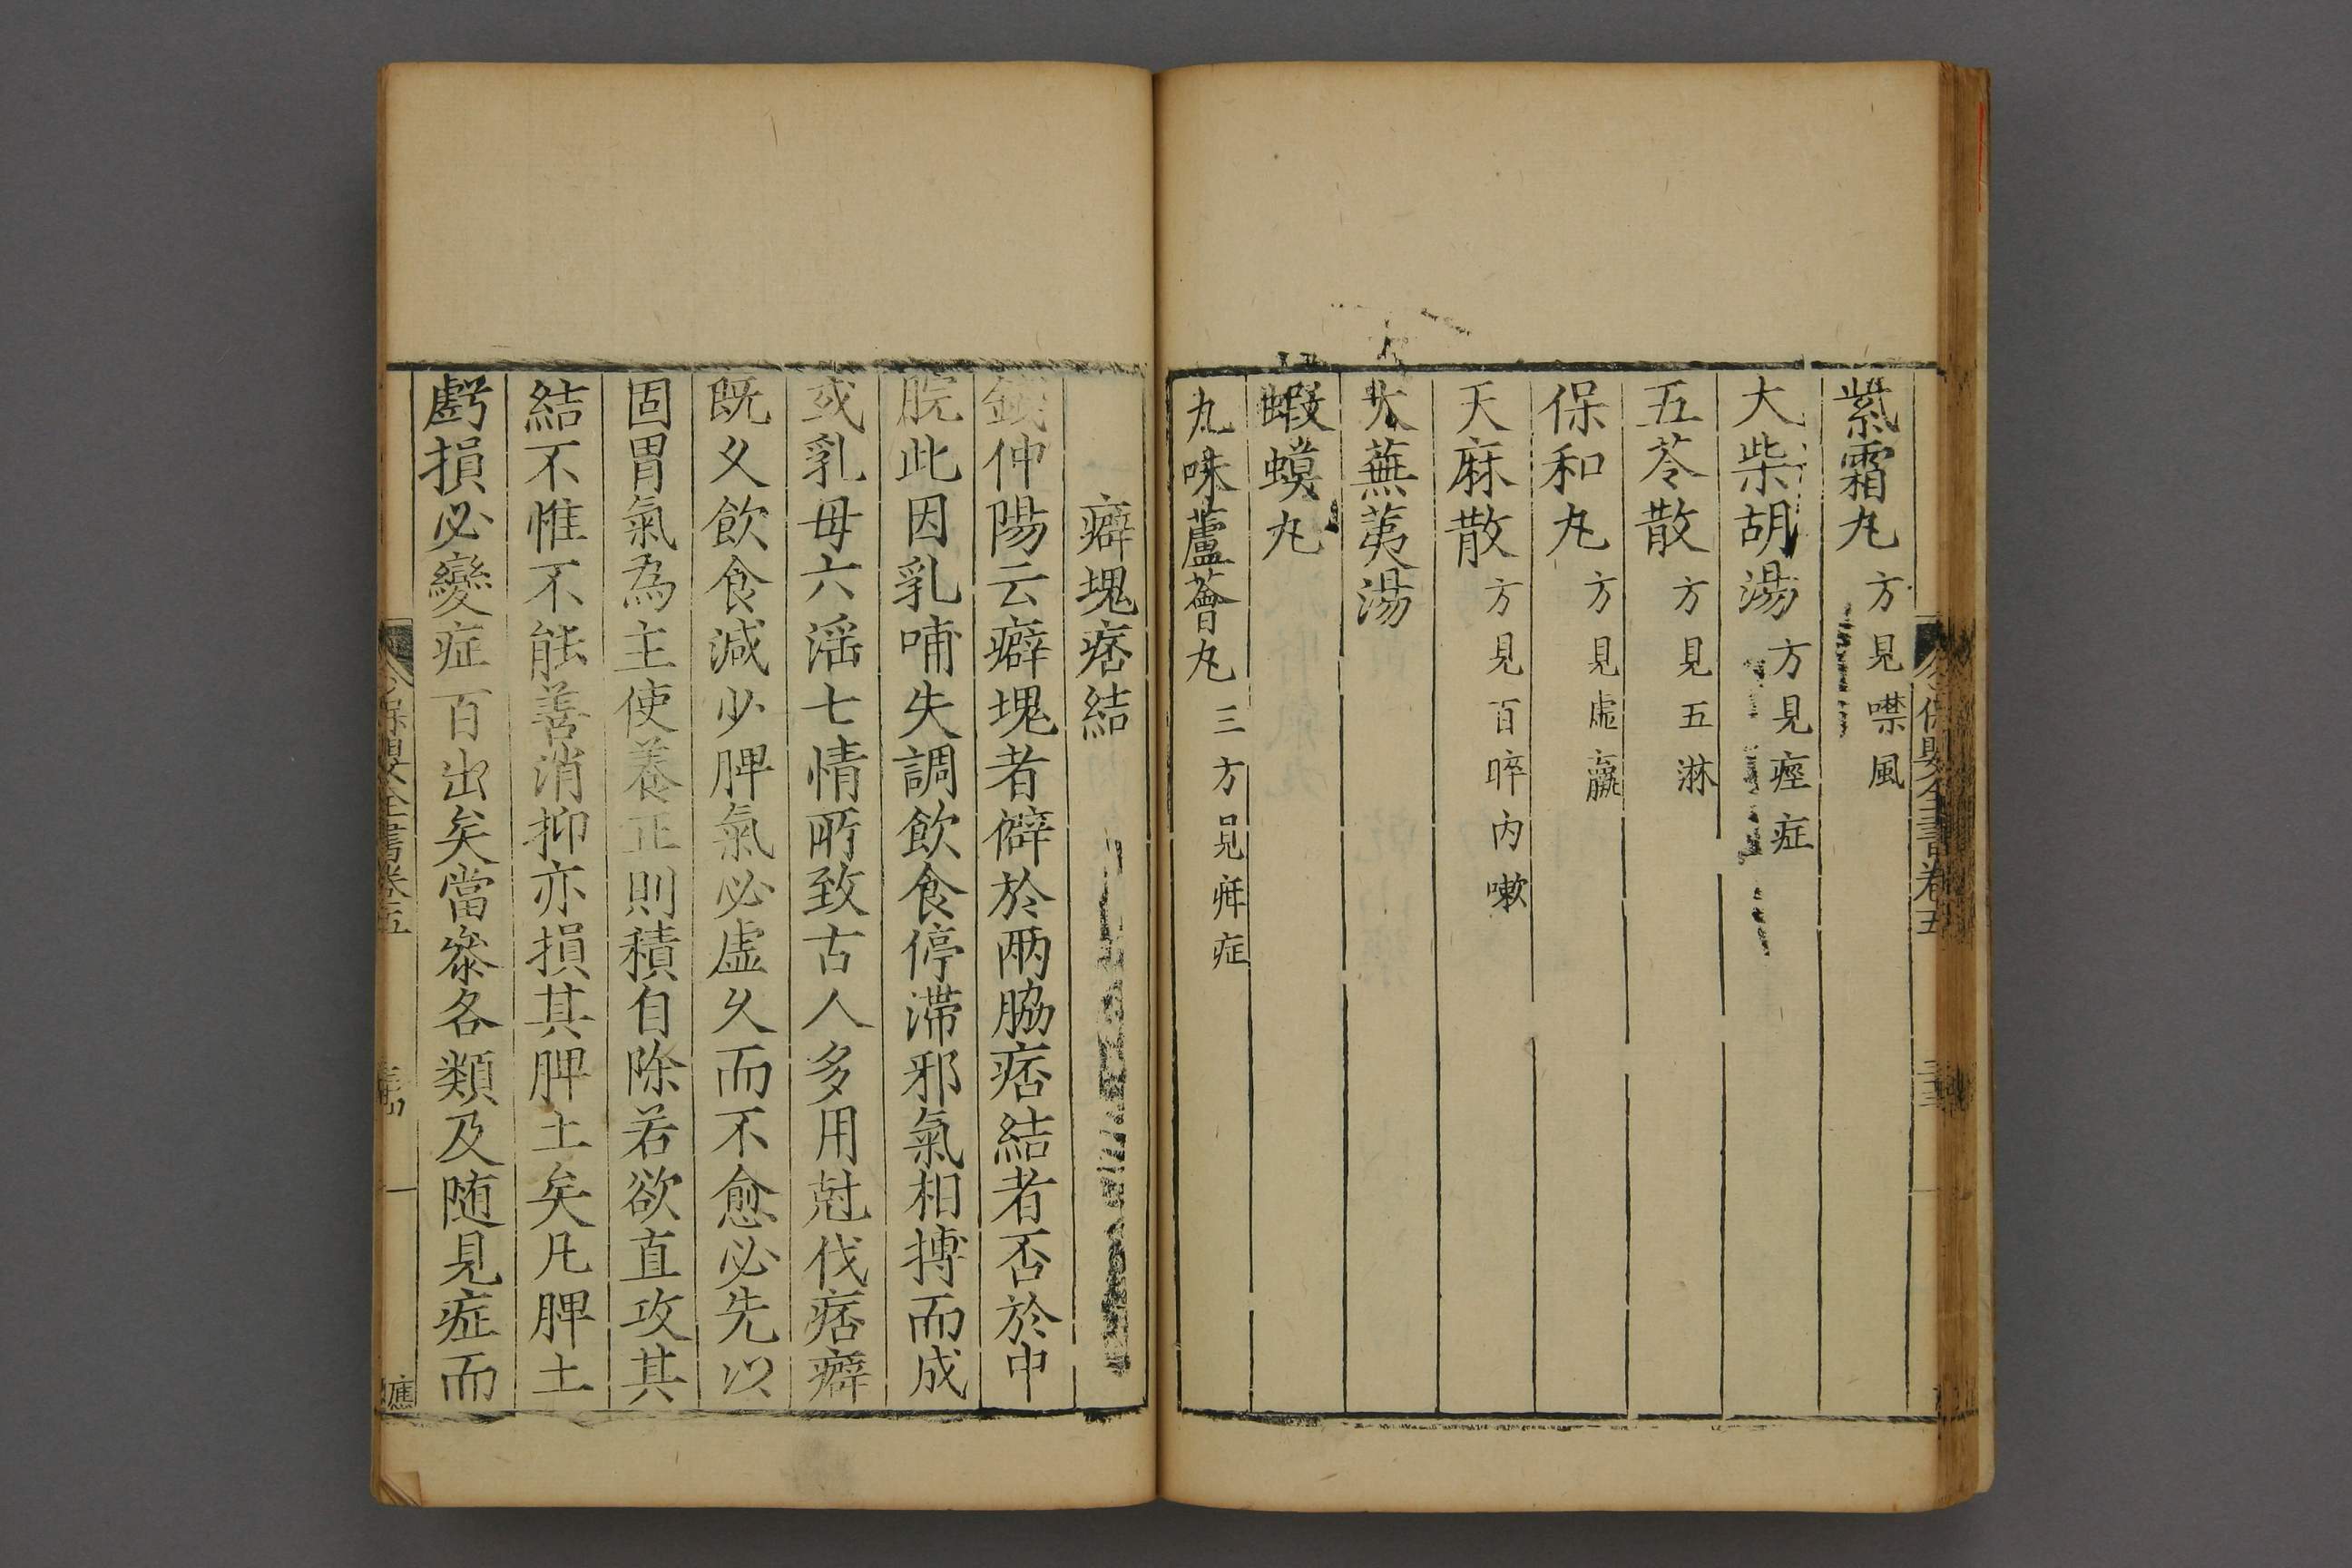 紫霜丸方見噤風
大柴胡湯方見痙症
五苓散方見五淋
保和丸方見虛羸
天麻散方見百晬內嗽
大蕪荑湯
蝦蟆丸
九味蘆薈丸三方見疳症
保嬰全書卷五
癖塊痞結
錢仲陽云癖塊者僻於兩脇痞結者否於中
脘此因乳哺失調飲食停滯邪氣相搏而成
或乳母六淫七情所致古人多用尅伐痞癖
既久飲食減少脾氣必虛久而不愈必先以
固胃氣為主使養正則積自除若欲直攻其
結不惟不能善消抑亦損其脾土矣凡脾土
虧損必變症百出矣當參各類及随見症而
保嬰全書卷五